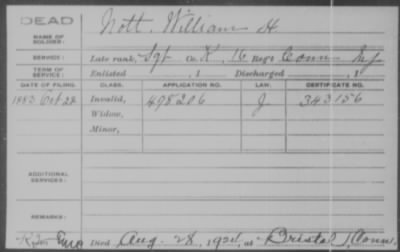 DEAD
NAME OF SOLDIER: Nott, William H
SERVICE: Late rank, Sgt Co. K, 16 Reg't Conn Inf
TERM OF SERVICE: Enlisted , 1 Discharged , 1
DATE OF FILING. CLASS. APPLICATION NO. LAW. CERTIFICATE NO.
1883 Oct 22 Invalid, 498206 J 343156
Widow,
Minor,
ADDITIONAL SERVICES:
REMARKS:
Died Aug. 28, 192 , at Bristol, Conn